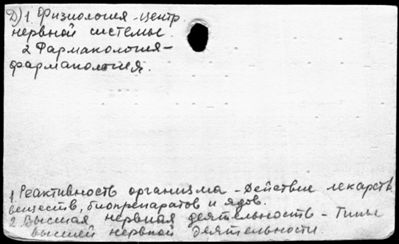 Д) 1. Физиология - центр.
нервной системы.
2. Фармакология -
фармакология.
1. Реактивность организма - Действие лекарств.
веществ, биопрепаратов и ядов.
2. Высшая нервная деятельность - Типы
высшей нервной деятельности.